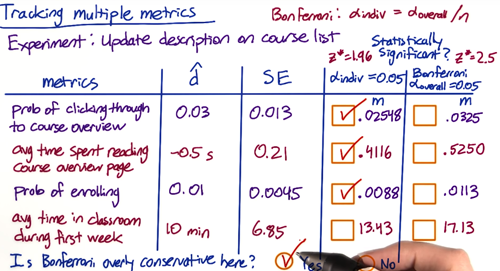 Tracking multiple metrics
Bonferroni: αindiv = αoverall/n
Experiment: Update description on course list
Statistically
Significant?
z*=1.96 z*=2.5
metrics d̂ SE αindiv=0.05 Bonferroni αoverall=0.05
m m
prob of clicking through to course overview 0.03 0.013 .02548 .0325
avg time spent reading course overview page -0.5 s 0.21 .4116 .5250
prob of enrolling 0.01 0.0045 .0088 .0113
avg time in classroom during first week 10 min 6.85 13.43 17.13
Is Bonferroni overly conservative here? Yes No